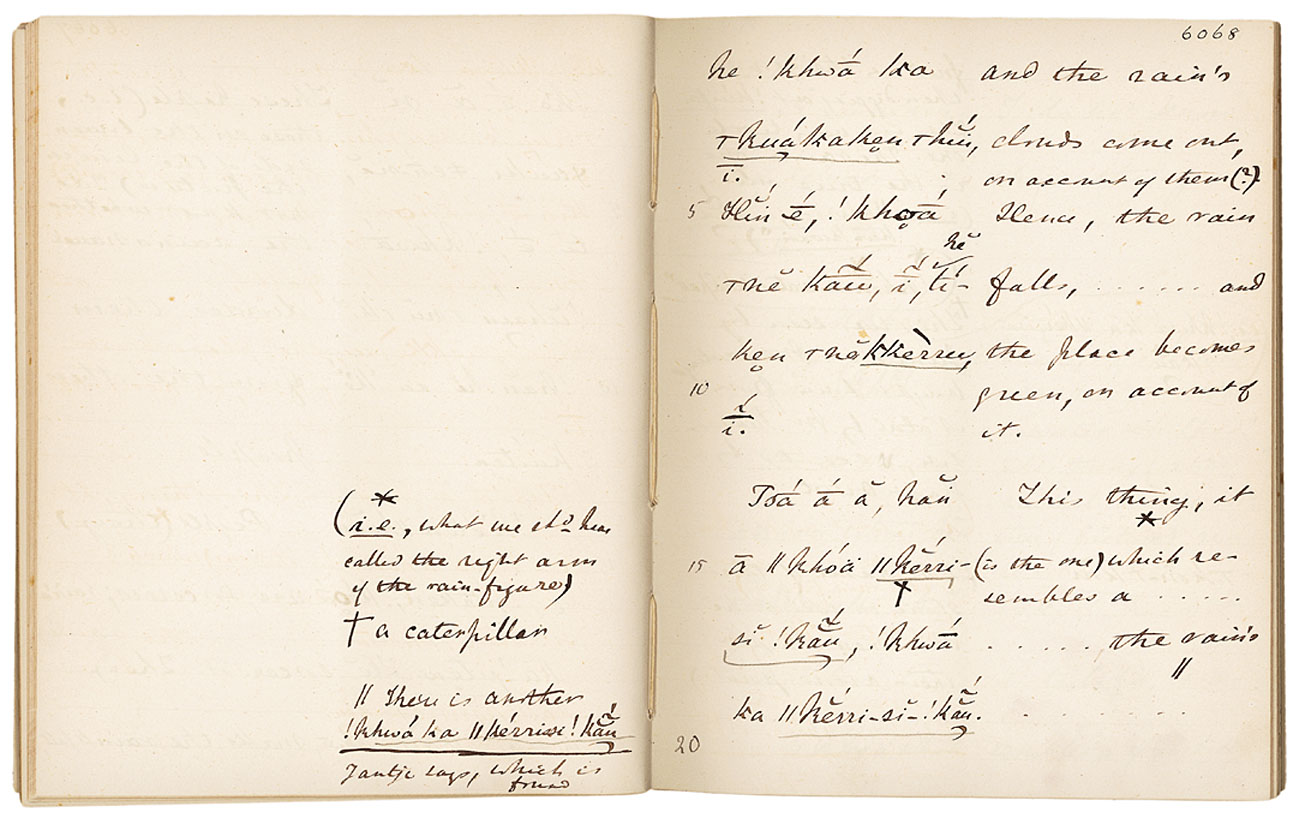 (i.e., what we shd. have
called the right arm
of the rain-figure)
† a caterpillar
|| There is another
!khwá ka ||kérrissi !kaũ
Jantje says, which is
found
6068
he !khwā́ ka and the rain's
kuákaken hiń, clouds come out,
ī. on account of them (?)
5 Hĭń ḗ, !khwā́ Hence, the rain
hĕ
nĕ kāū, ī́, tĭ́- falls, ...... and
ken nĕ kkèrreu, the place becomes
10 green, on account of
ī. it.
Tóā́ ā́ ă, haň This thing, it
*
15 ā ||khóä ||kĕ́rri- (is the one) which re-
† sembles a .....
sĭ !kăũ, !khwā́ ......, the rain's
||
ka ||kĕ́rri-sĭ-!kăũ. ........
20